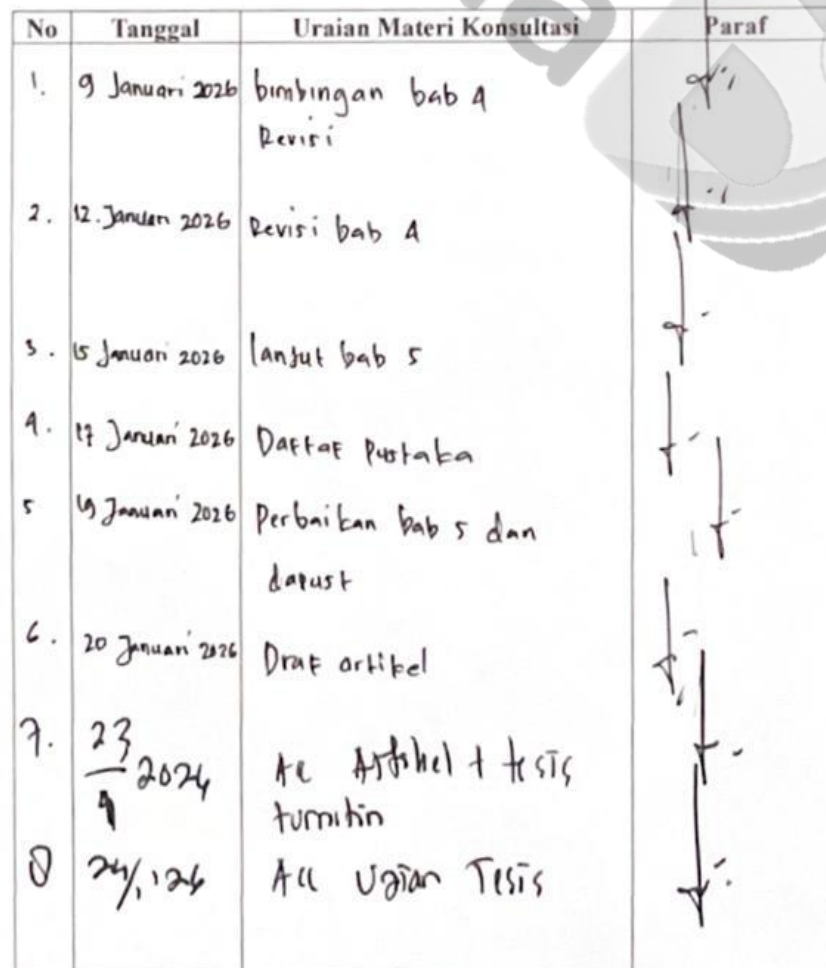 No Tanggal Uraian Materi Konsultasi Paraf
1. 9 Januari 2026 bimbingan bab 4
Revisi
2. 12. Januari 2026 Revisi bab 4
3. 15 Januari 2026 lanjut bab 5
4. 17 Januari 2026 Daftar Pustaka
5 19 Januari 2026 Perbaikan bab 5 dan
dapust
6. 20 Januari 2026 Draf artikel
7. 23/1 2026 Acc Artikel + tesis
turnitin
8 24/1 26 Acc Ujian Tesis